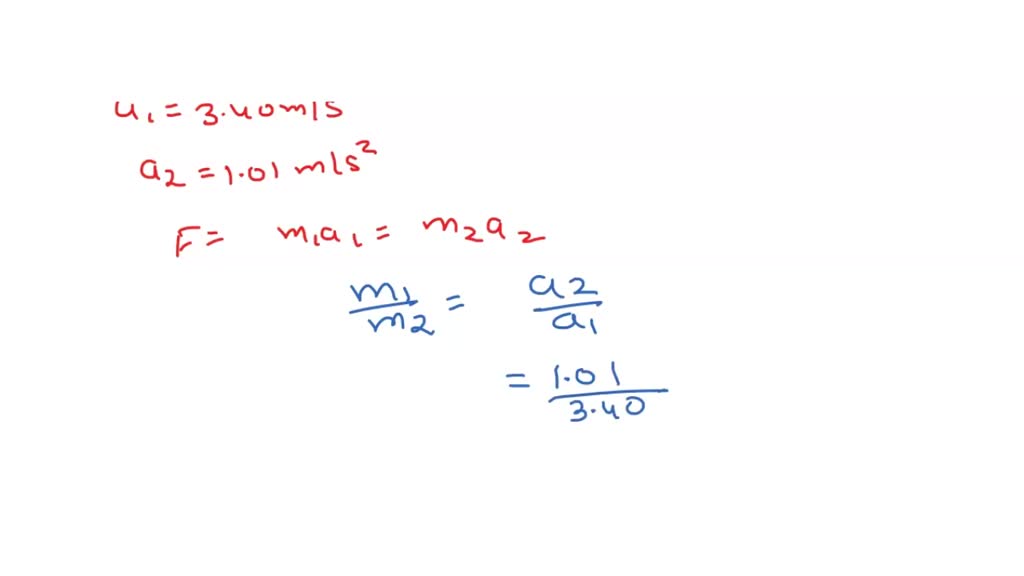 u₁ = 3.40 m/s
a₂ = 1.01 m/s²
F = m₁a₁ = m₂a₂
m₁/m₂ = a₂/a₁
= 1.01/3.40